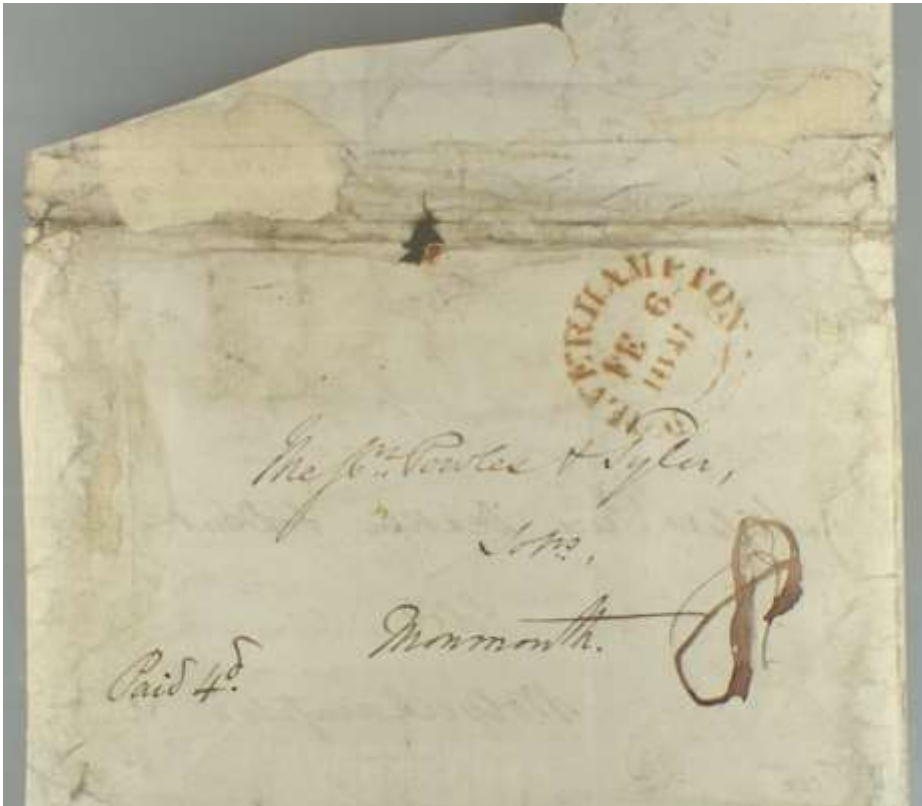 WOLVERHAMPTON
FE 6
1841
Mess.rs Powles & Tyler,
Sol.rs,
Monmouth.
Paid 4d.
8